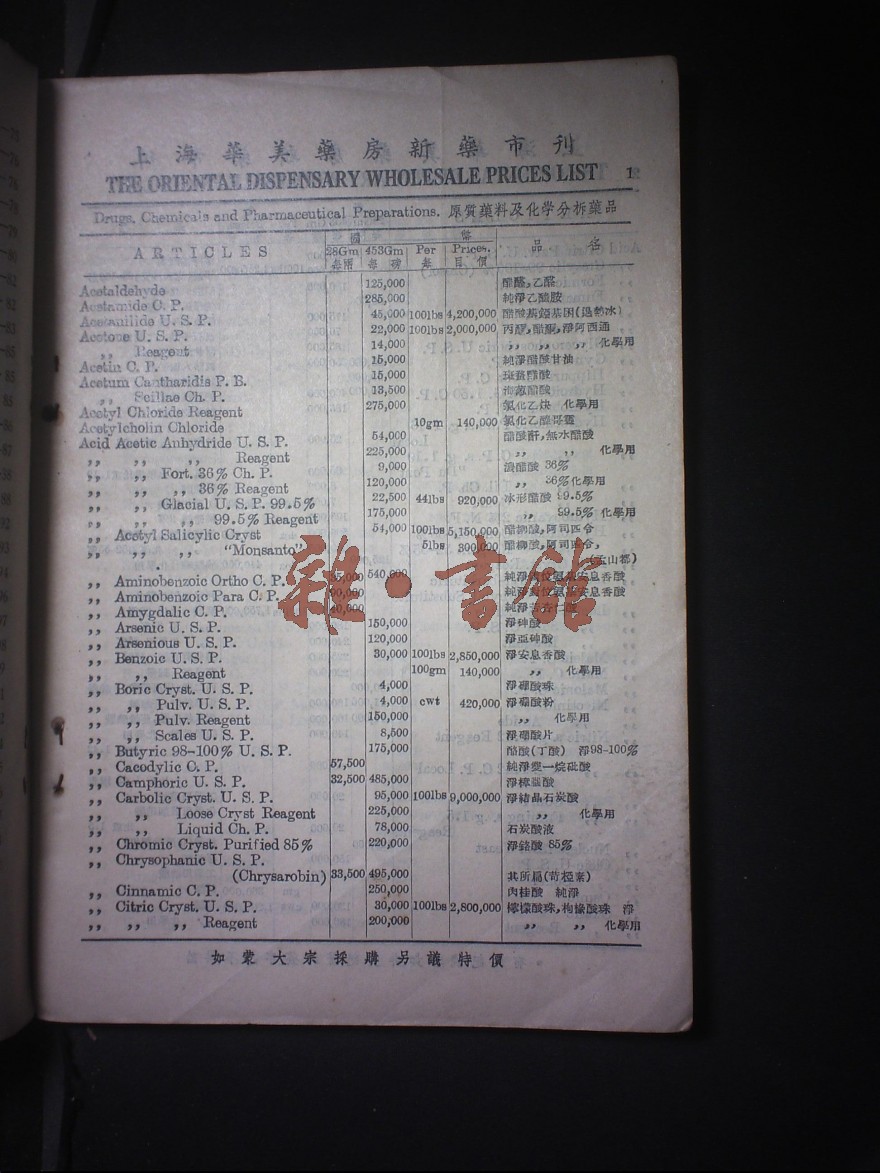 上海華美藥房新藥市刊
THE ORIENTAL DISPENSARY WHOLESALE PRICES LIST 1
Drugs, Chemicals and Pharmaceutical Preparations. 原質藥料及化学分拆藥品
國 幣
ARTICLES 28Gm 453Gm Per Prices. 品 名
每兩 每磅 每 目價
Acetaldehyde 125,000 醋醛,乙醛
Acetamide C. P. 285,000 純淨乙醯胺
Acetanilide U. S. P. 45,000 100lbs 4,200,000
Acetone U. S. P. 22,000 100lbs 2,000,000 丙酮,醋酮,淨阿西通
,, Reagent 14,000 ,, ,, ,, 化學用
Acetin C. P. 15,000 純淨醋酸甘油
Acetum Cantharidis P. B. 15,000 斑蝥醋酸
,, Scillae Ch. P. 13,500 海葱醋酸
Acetyl Chloride Reagent 275,000 氯化乙炔 化學用
Acetylcholin Chloride 10gm 140,000
Acid Acetic Anhydride U. S. P. 54,000 醋酸酐,無水醋酸
,, ,, ,, Reagent 225,000 ,, ,, 化學用
,, ,, Fort. 36% Ch. P. 9,000 濃醋酸 36%
,, ,, ,, 36% Reagent 120,000 ,, 36% 化學用
,, ,, Glacial U. S. P. 99.5% 22,500 44lbs 920,000 冰形醋酸 99.5%
,, ,, ,, 99.5% Reagent 175,000 ,, 99.5% 化學用
,, Acetyl Salicylic Cryst 54,000 100lbs 5,150,000 醋柳酸,阿司匹令
,, ,, ,, "Monsanto" 5lbs 300,000 醋柳酸,阿司匹令,
(孟山都)
,, Aminobenzoic Ortho C. P. 35,000 540,000
,, Aminobenzoic Para C. P. 90,000
,, Amygdalic C. P. 40,000
,, Arsenic U. S. P. 150,000 淨砷酸
,, Arsenious U. S. P. 120,000 淨亞砷酸
,, Benzoic U. S. P. 30,000 100lbs 2,850,000 淨安息香酸
,, ,, Reagent 100gm 140,000 ,, 化學用
,, Boric Cryst. U. S. P. 4,000 淨硼酸珠
,, ,, Pulv. U. S. P. 4,000 cwt 420,000 淨硼酸粉
,, ,, Pulv. Reagent 150,000 ,, 化學用
,, ,, Scales U. S. P. 8,500 淨硼酸片
,, Butyric 98-100% U. S. P. 175,000 酪酸(丁酸) 淨98-100%
,, Cacodylic C. P. 57,500
,, Camphoric U. S. P. 32,500 485,000 淨樟腦酸
,, Carbolic Cryst. U. S. P. 95,000 100lbs 9,000,000 淨結晶石炭酸
,, ,, Loose Cryst Reagent 225,000 ,, 化學用
,, ,, Liquid Ch. P. 78,000 石炭酸液
,, Chromic Cryst. Purified 85% 220,000 淨鉻酸 85%
,, Chrysophanic U. S. P.
(Chrysarobin) 33,500 495,000
,, Cinnamic C. P. 250,000 肉桂酸 純淨
,, Citric Cryst. U. S. P. 30,000 100lbs 2,800,000 檸檬酸珠,枸櫞酸珠 淨
,, ,, ,, Reagent 200,000 ,, ,, 化學用
如蒙大宗採購另議特價
雜·書館